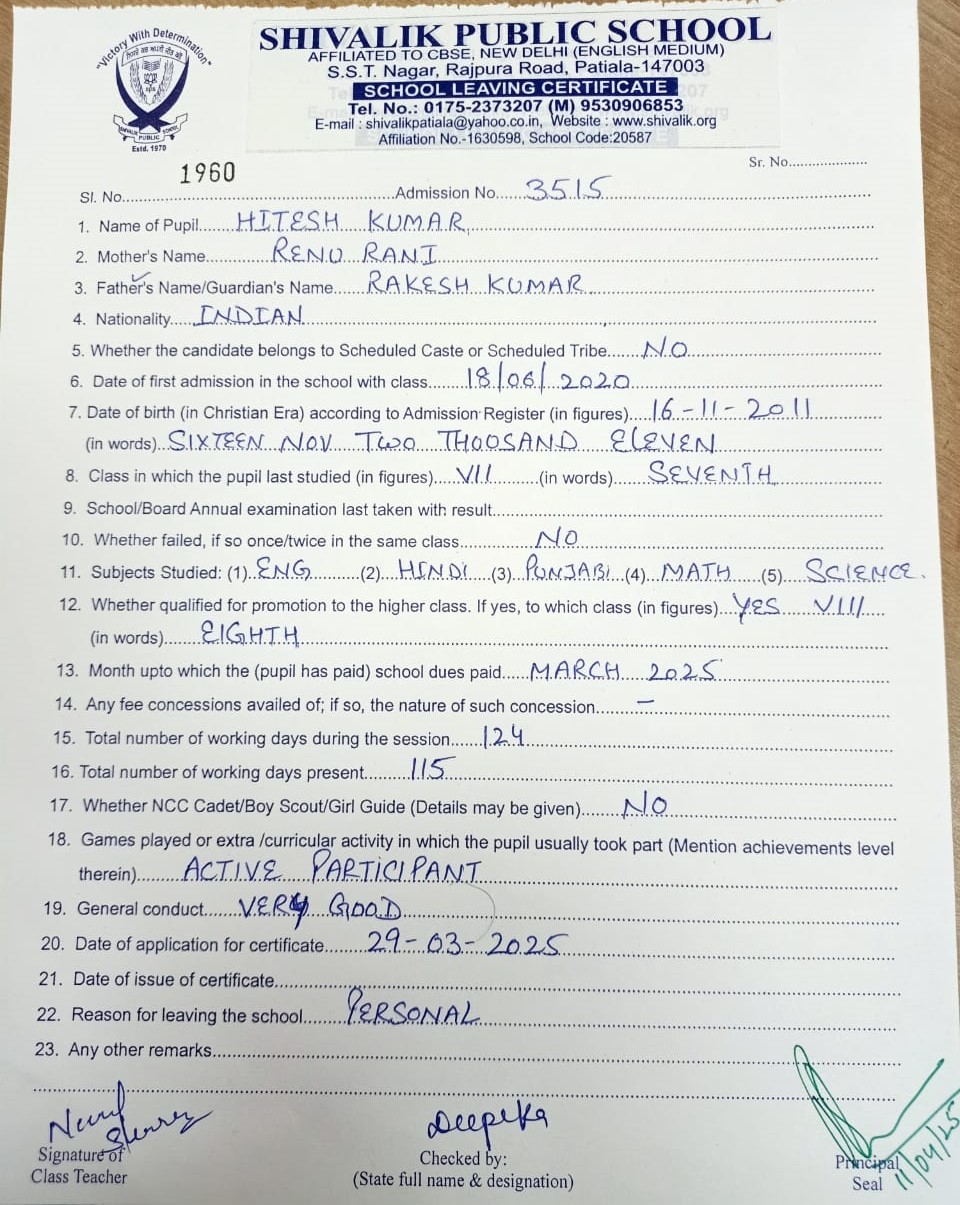 "Victory With Determination"
SHIVALIK PUBLIC SCHOOL
Estd. 1970
SHIVALIK PUBLIC SCHOOL
AFFILIATED TO CBSE, NEW DELHI (ENGLISH MEDIUM)
S.S.T. Nagar, Rajpura Road, Patiala-147003
SCHOOL LEAVING CERTIFICATE
Tel. No.: 0175-2373207 (M) 9530906853
E-mail : shivalikpatiala@yahoo.co.in, Website : www.shivalik.org
Affiliation No.-1630598, School Code:20587
Sr. No....................
Sl. No. 1960 Admission No. 3515
1. Name of Pupil HITESH KUMAR
2. Mother's Name RENU RANI
3. Father's Name/Guardian's Name RAKESH KUMAR
4. Nationality INDIAN
5. Whether the candidate belongs to Scheduled Caste or Scheduled Tribe NO
6. Date of first admission in the school with class 18/06/2020
7. Date of birth (in Christian Era) according to Admission Register (in figures) 16-11-2011
(in words) SIXTEEN NOV TWO THOOSAND ELEVEN
8. Class in which the pupil last studied (in figures) VII (in words) SEVENTH
9. School/Board Annual examination last taken with result
10. Whether failed, if so once/twice in the same class NO
11. Subjects Studied: (1) ENG (2) HINDI (3) PUNJABI (4) MATH (5) SCIENCE.
12. Whether qualified for promotion to the higher class. If yes, to which class (in figures) YES VIII
(in words) EIGHTH
13. Month upto which the (pupil has paid) school dues paid MARCH 2025
14. Any fee concessions availed of; if so, the nature of such concession –
15. Total number of working days during the session 124
16. Total number of working days present 115
17. Whether NCC Cadet/Boy Scout/Girl Guide (Details may be given) NO
18. Games played or extra /curricular activity in which the pupil usually took part (Mention achievements level
therein) ACTIVE PARTICIPANT
19. General conduct VERY GOOD
20. Date of application for certificate 29-03-2025
21. Date of issue of certificate
22. Reason for leaving the school PERSONAL
23. Any other remarks
Deepika
Signature of
Class Teacher
Checked by:
(State full name & designation)
Principal
Seal
11/04/25